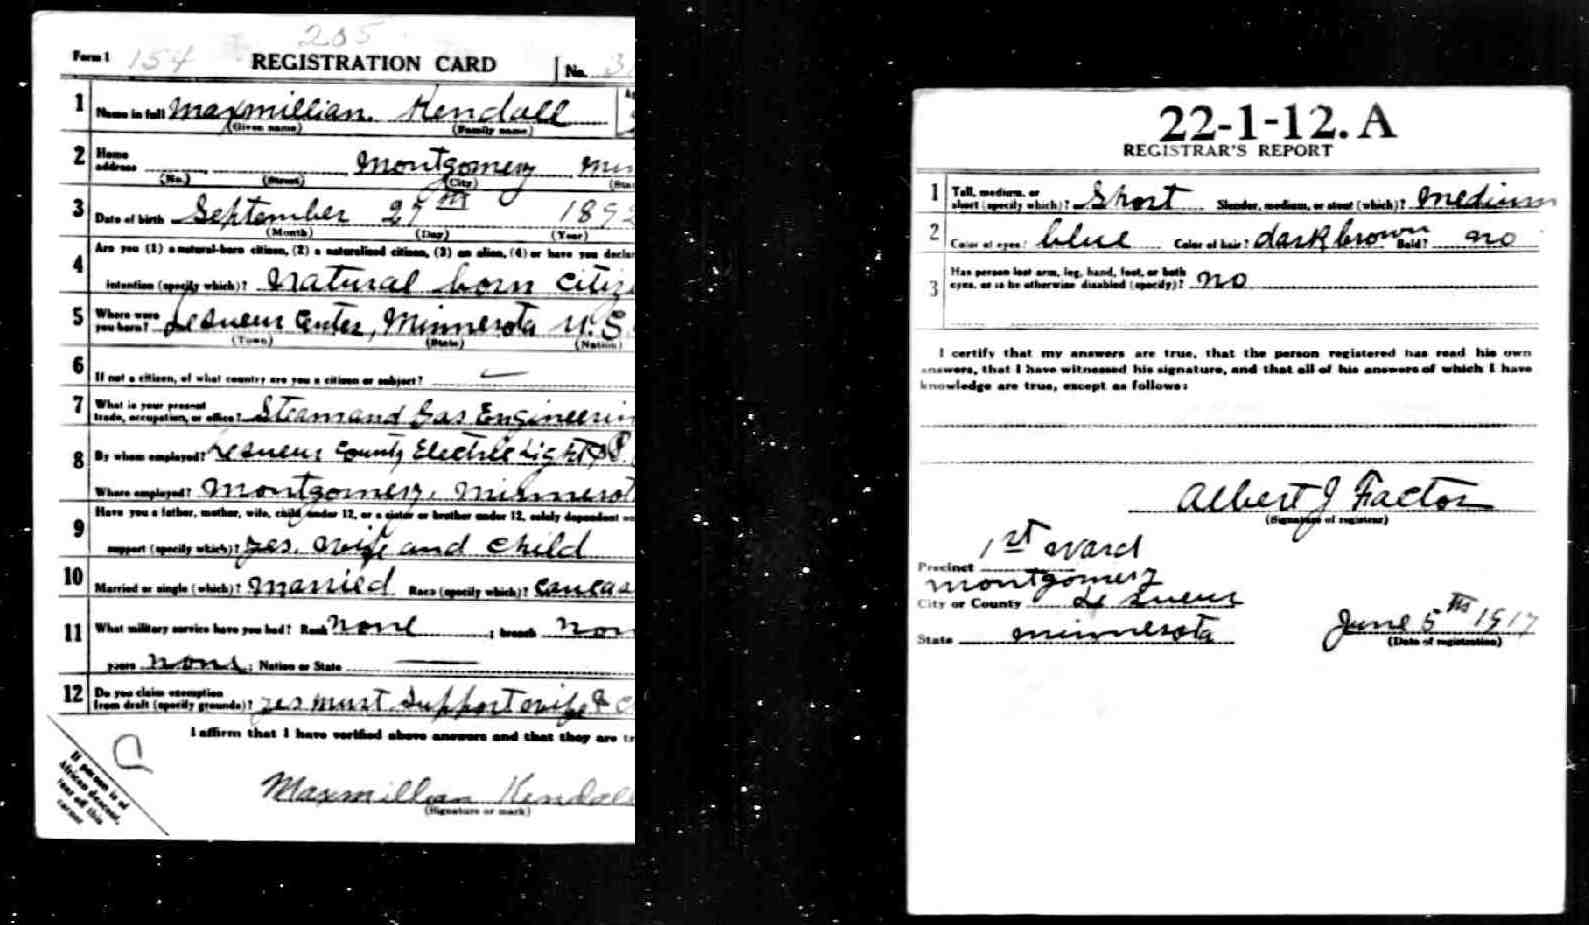 205
Form 1 154 REGISTRATION CARD No. 3
1 Name in full Maxmillian. Kendall
(Given name) (Family name)
2 Home address Montgomery Min
(No.) (Street) (City) (Sta
3 Date of birth September 27th 1892
(Month) (Day) (Year)
4 Are you (1) a natural-born citizen, (2) a naturalized citizen, (3) an alien, (4) or have you declar
intention (specify which)? Natural born citiz
5 Where were you born? Lesueur Center, Minnesota U.S.
(Town) (State) (Nation)
6 If not a citizen, of what country are you a citizen or subject? —
7 What is your present trade, occupation, or office? Steam and Gas Engineerin
8 By whom employed? Lesueur County Electric Light & P.
Where employed? Montgomery, Minnesot
9 Have you a father, mother, wife, child under 12, or a sister or brother under 12, solely dependent on
support (specify which)? yes. wife and child
10 Married or single (which)? Married Race (specify which)? Caucas
11 What military service have you had? Rank None ; branch Non
years None ; Nation or State —
12 Do you claim exemption from draft (specify grounds)? yes must support wife & C
I affirm that I have verified above answers and that they are tr
If person is of African descent, tear off this corner
Maxmillian Kendall
(Signature or mark)
22-1-12. A
REGISTRAR'S REPORT
1 Tall, medium, or short (specify which)? Short Slender, medium, or stout (which)? Medium
2 Color of eyes? blue Color of hair? dark brown Bald? no
3 Has person lost arm, leg, hand, foot, or both eyes, or is he otherwise disabled (specify)? no
I certify that my answers are true, that the person registered has read his own
answers, that I have witnessed his signature, and that all of his answers of which I have
knowledge are true, except as follows:
Albert J Factor
(Signature of registrar)
Precinct 1st Ward
Montgomery
City or County Le Sueur
State Minnesota
June 5th 1917
(Date of registration)